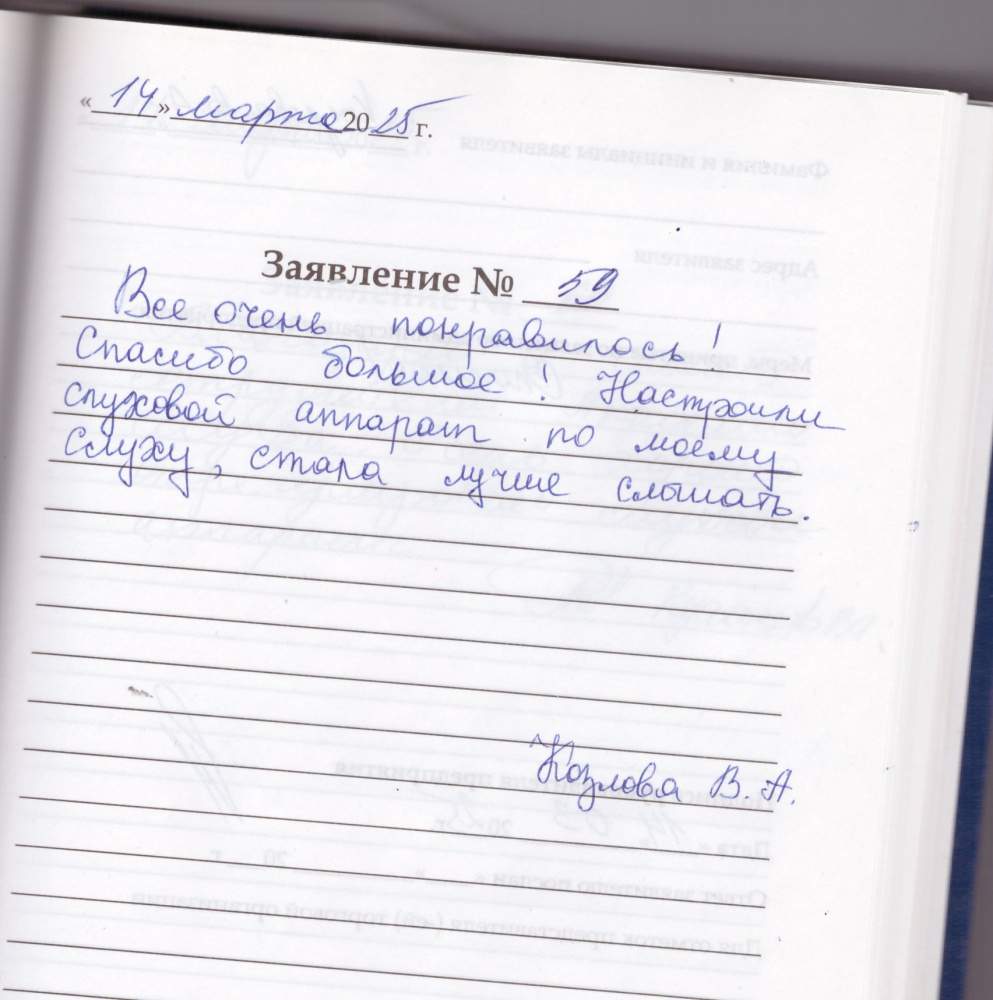 « 14 » марта 2025 г.
Заявление № 59
Все очень понравилось!
Спасибо большое! Настроили
слуховой аппарат по моему
слуху, стала лучше слышать.
Козлова В. А.